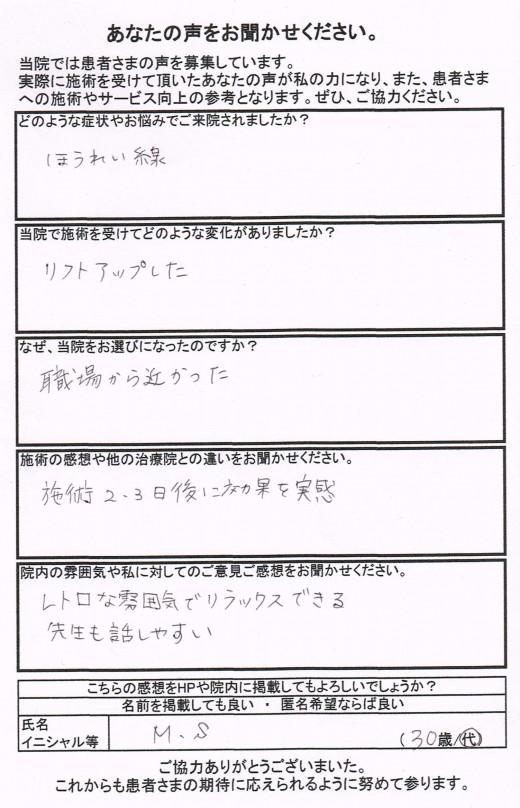 あなたの声をお聞かせください。
当院では患者さまの声を募集しています。
実際に施術を受けて頂いたあなたの声が私の力になり、また、患者さま
への施術やサービス向上の参考となります。ぜひ、ご協力ください。
どのような症状やお悩みでご来院されましたか？
ほうれい線
当院で施術を受けてどのような変化がありましたか？
リフトアップした
なぜ、当院をお選びになったのですか？
職場から近かった
施術の感想や他の治療院との違いをお聞かせください。
施術2、3日後に効果を実感
院内の雰囲気や私に対してのご意見ご感想をお聞かせください。
レトロな雰囲気でリラックスできる
先生も話しやすい
こちらの感想をHPや院内に掲載してもよろしいでしょうか？
名前を掲載しても良い ・ 匿名希望ならば良い
氏名
イニシャル等 M、S (30歳/代)
ご協力ありがとうございまいた。
これからも患者さまの期待に応えられるように努めて参ります。